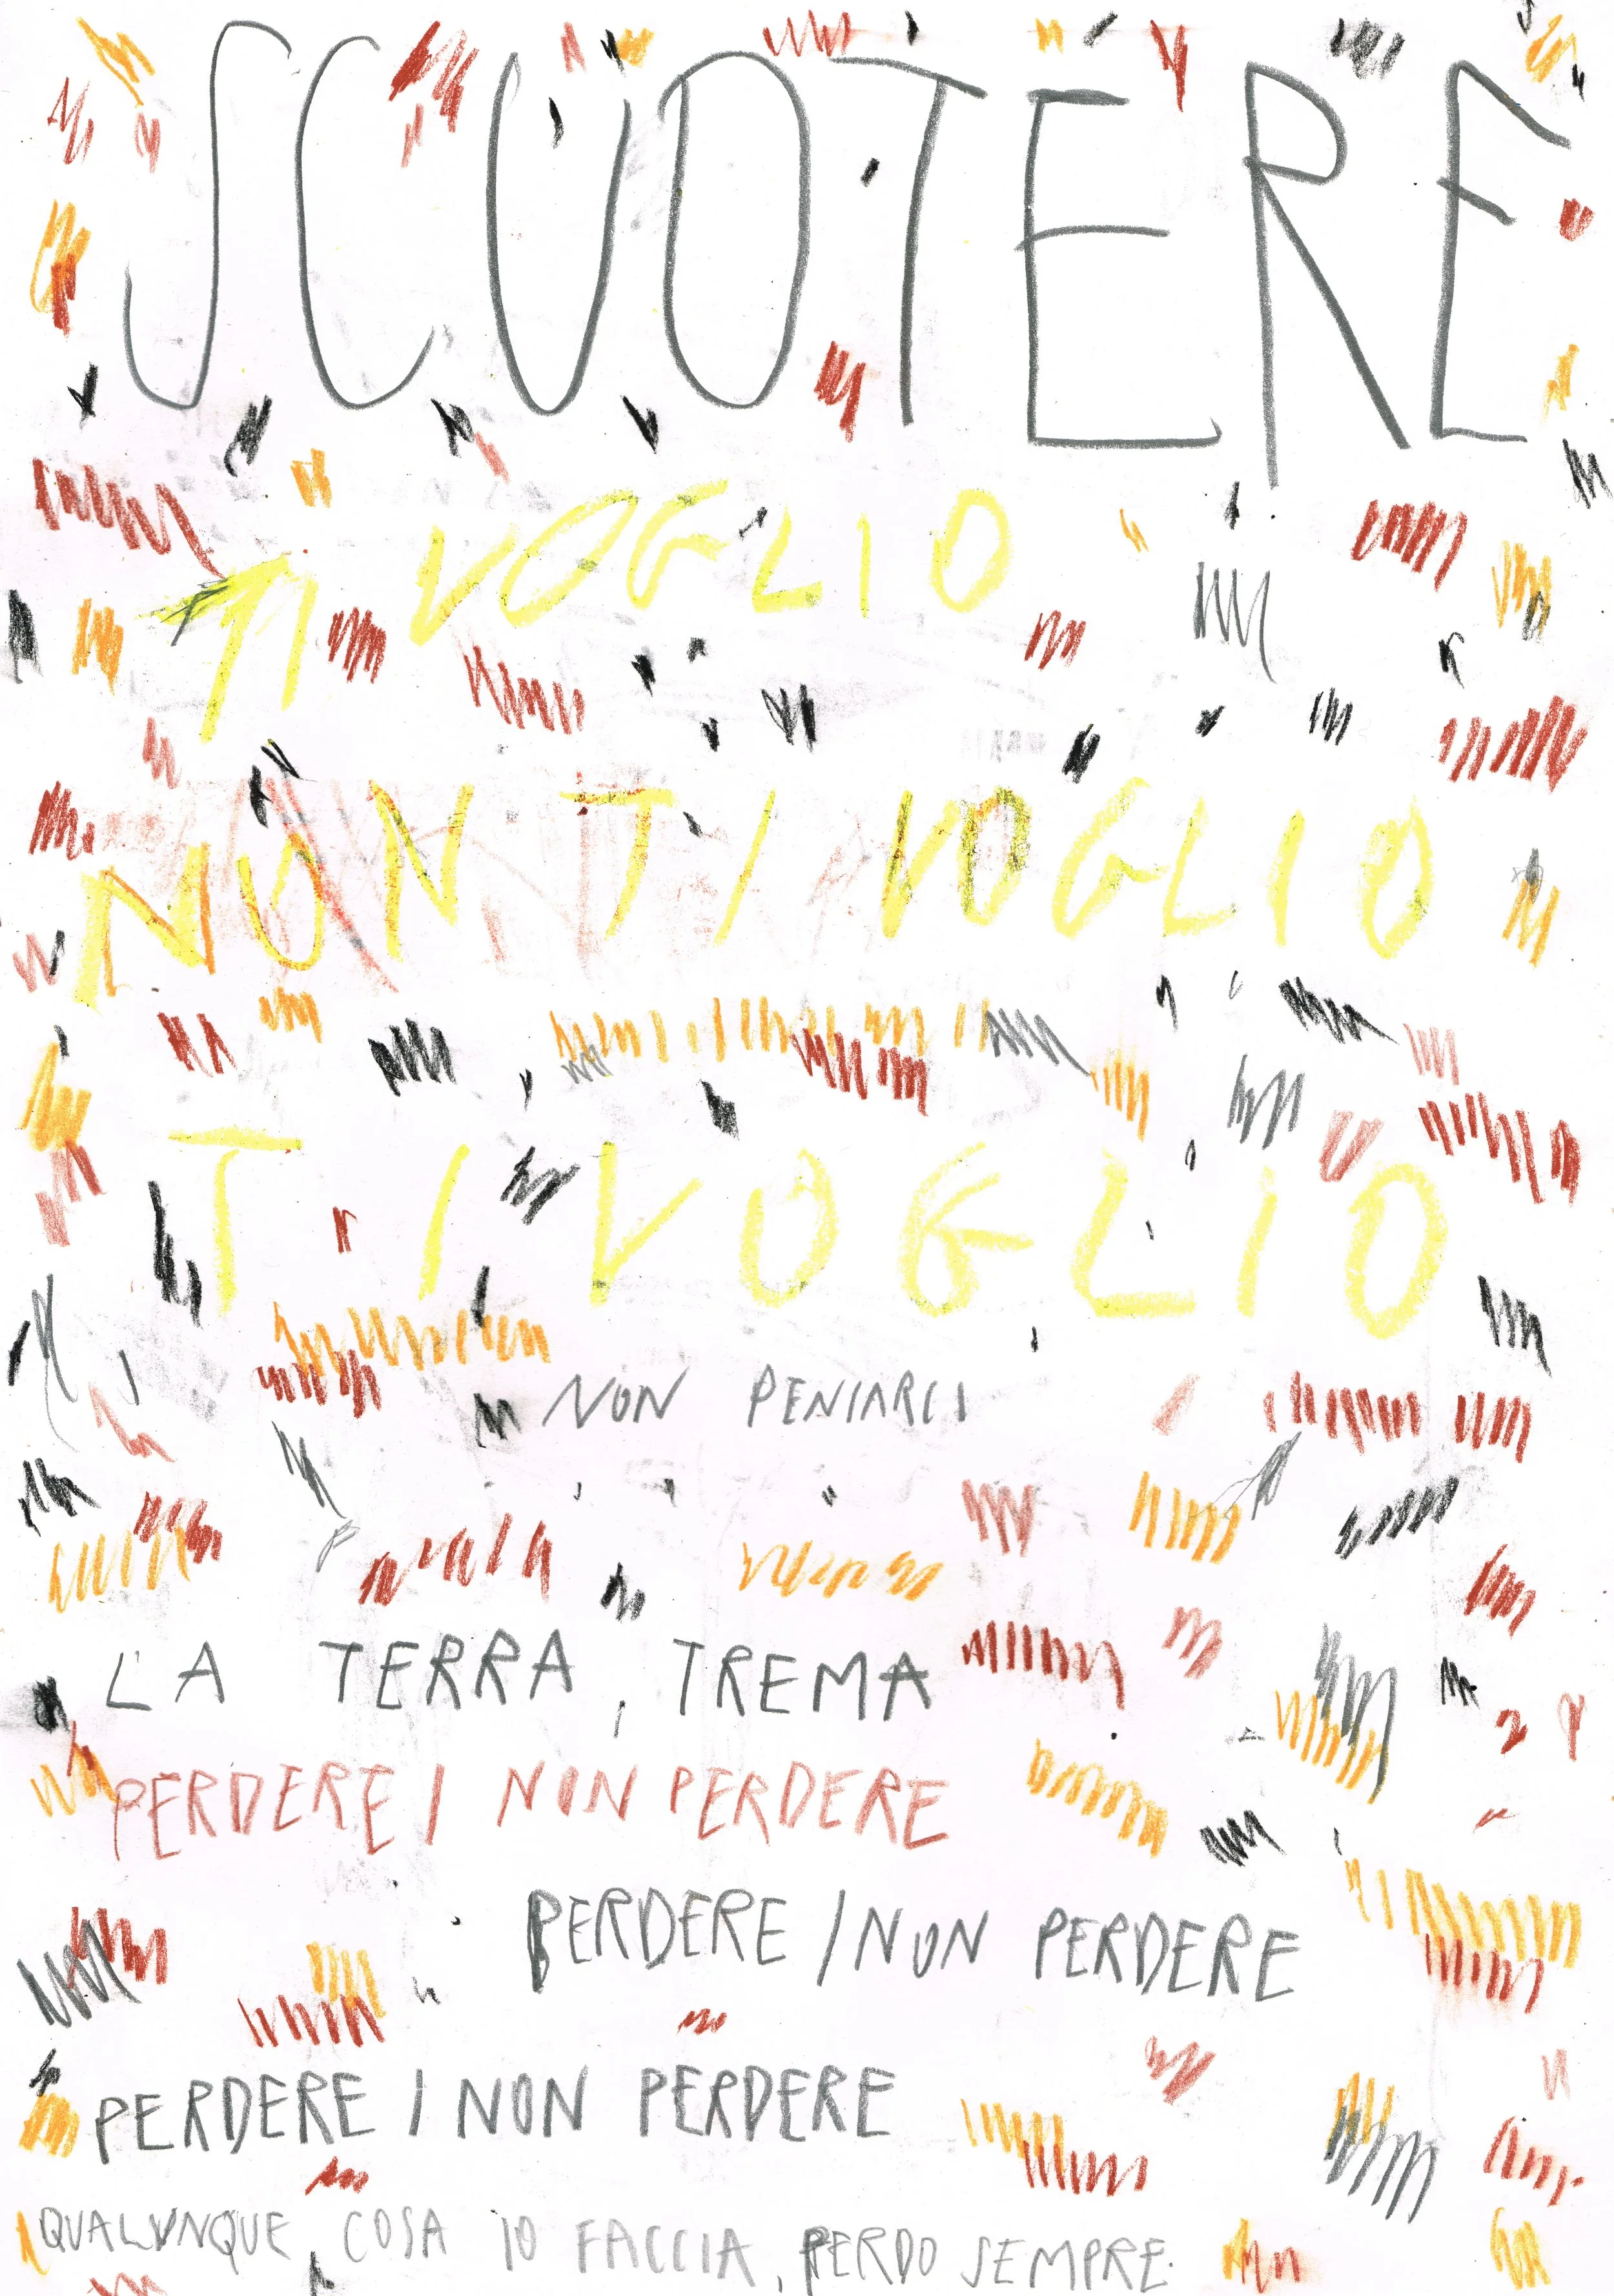 SCUOTERE
TI VOGLIO
NON TI VOGLIO
TI VOGLIO
NON PENSARCI
LA TERRA, TREMA
PERDERE / NON PERDERE
PERDERE / NON PERDERE
PERDERE / NON PERDERE
QUALUNQUE COSA IO FACCIA, PERDO SEMPRE.